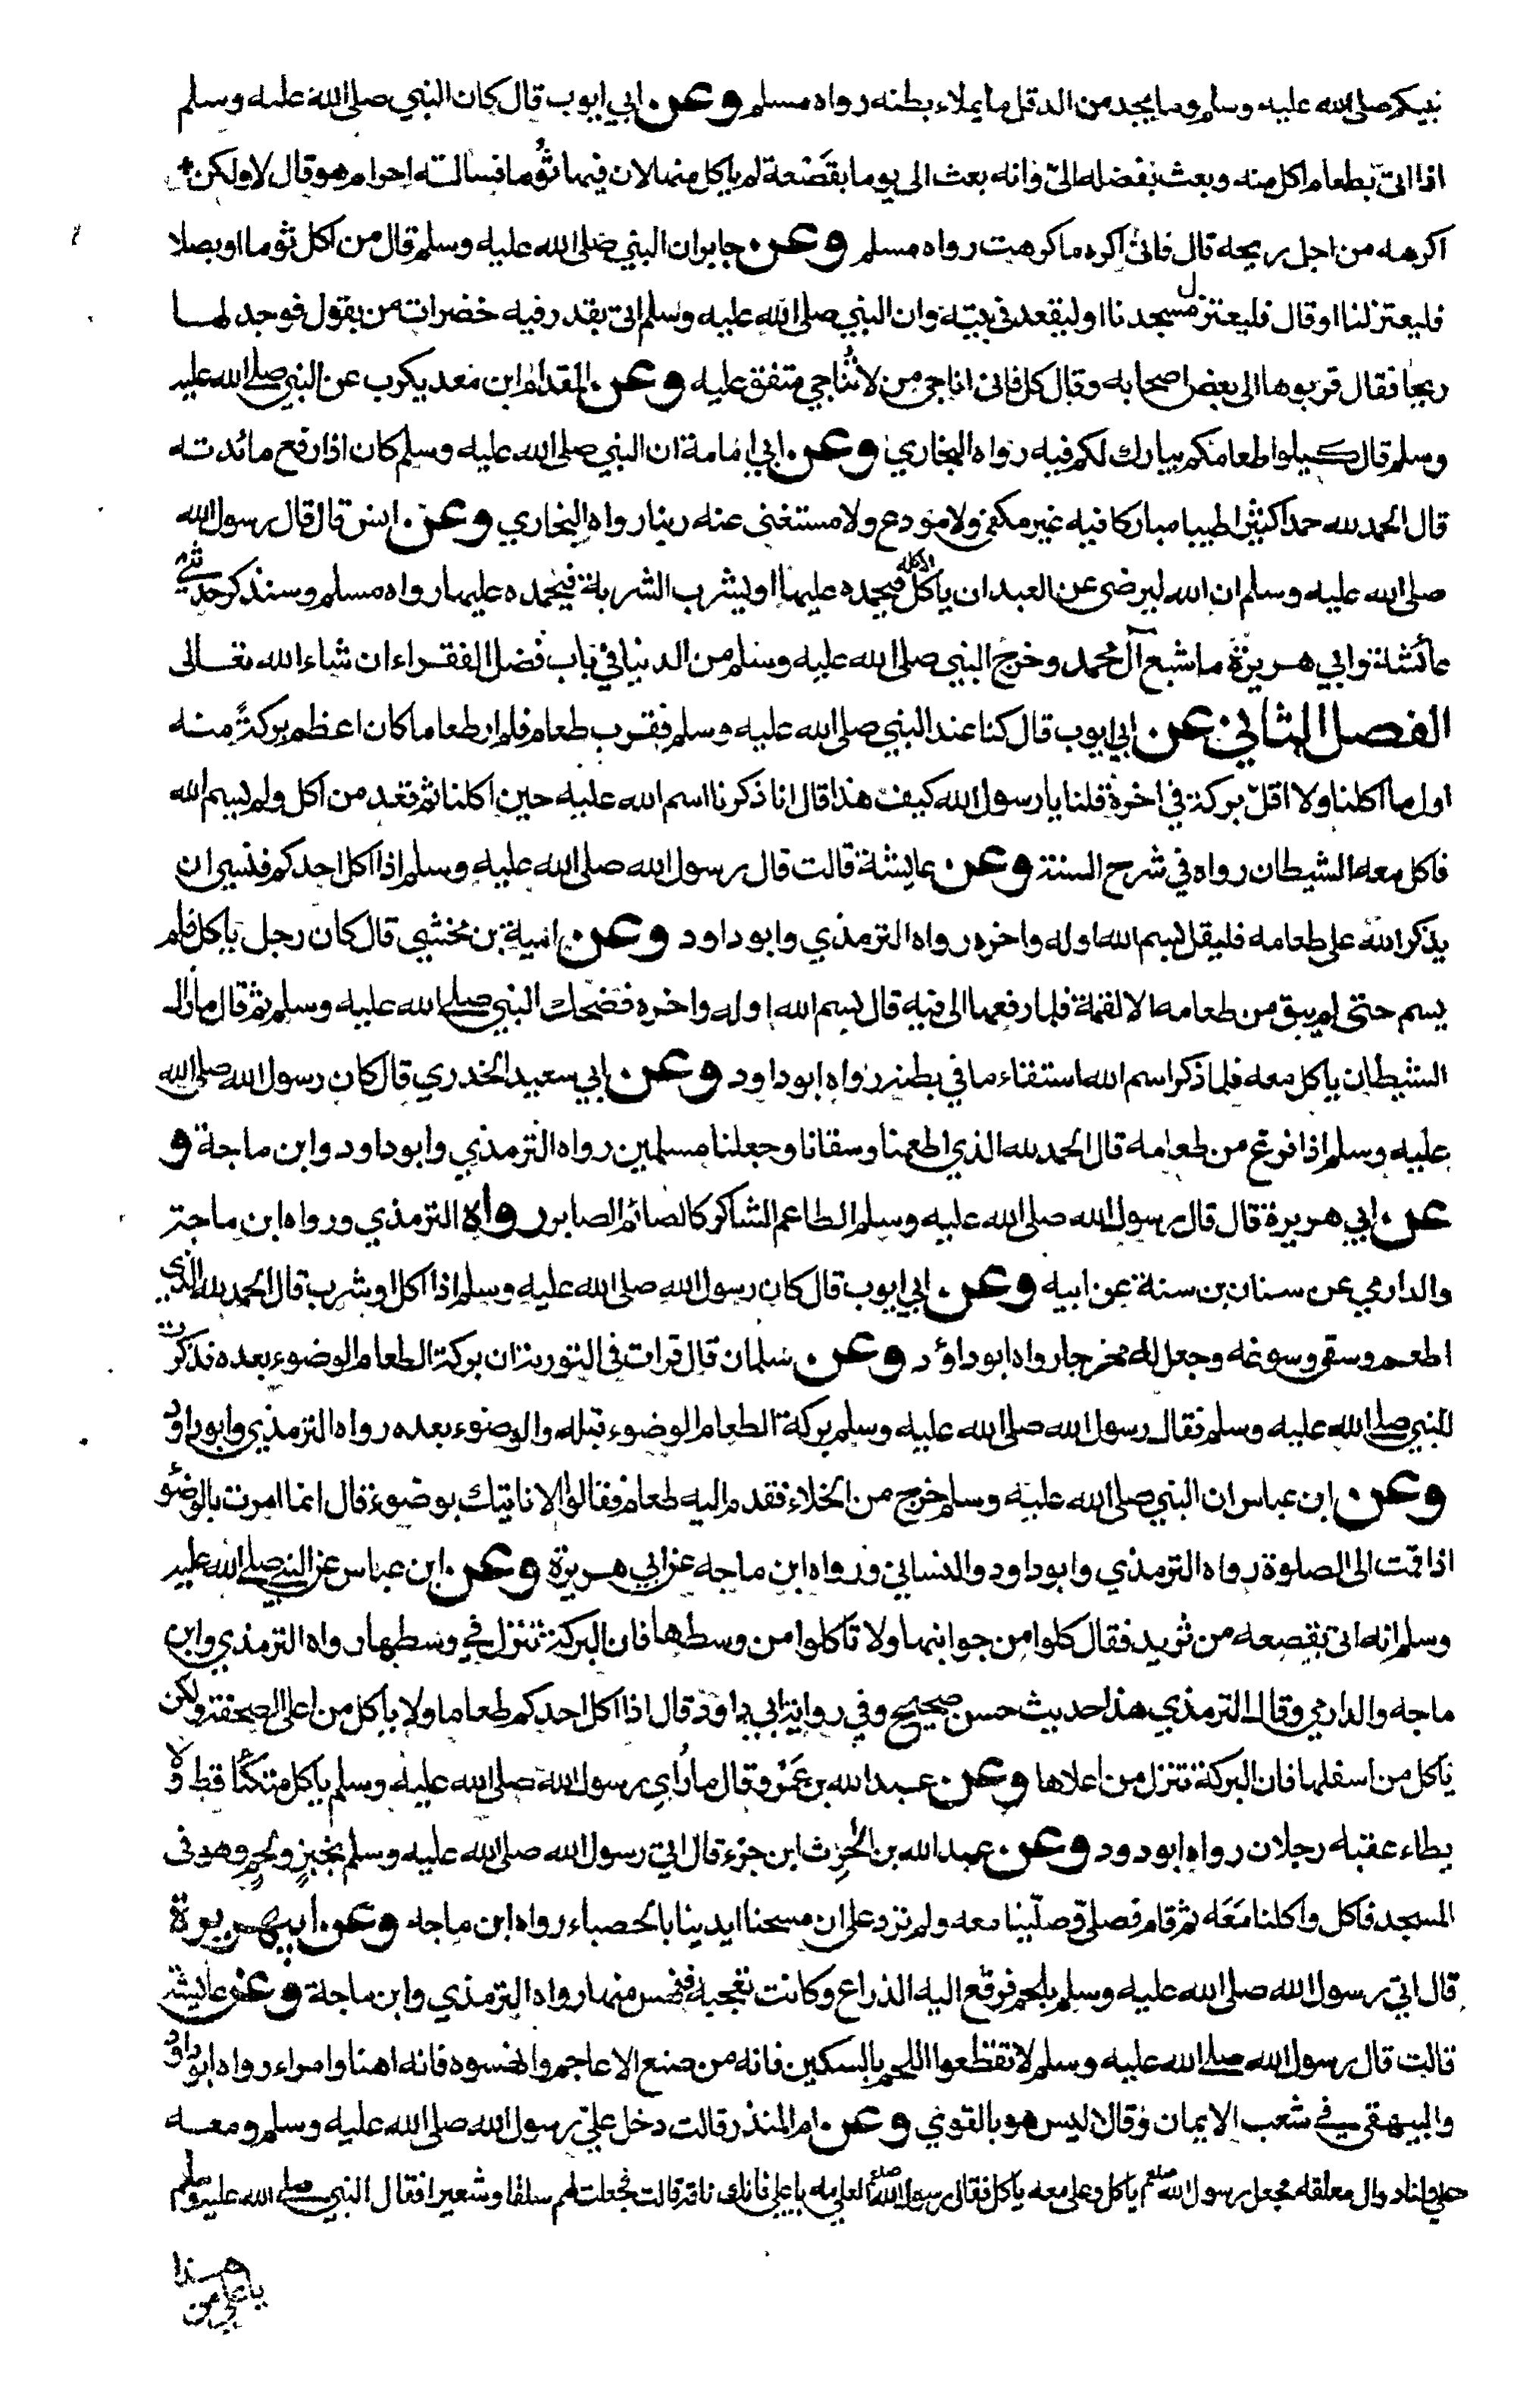 نبيكم صلى الله عليه وسلم وما يجد من الدقل ما يملاء بطنه رواه مسلم وعن ابي ايوب قال كان النبي صلى الله عليه وسلم
اذا اتى بطعام اكل منه وبعث بفضله الىّ وانه بعث الى يوما بقصعة لم ياكل منها لان فيها ثُوما فسالته احرام هو قال لا ولكن
اكرهه من اجل ريحه قال فانى اكره ما كرهت رواه مسلم وعن جابر ان النبي صلى الله عليه وسلم قال من اكل ثوما او بصلا
فليعتزلنا او قال فليعتزل مسجدنا او ليقعد فى بيته وان النبي صلى الله عليه وسلم اتى بقدر فيه خضرات من بقول فوجد لها
ريحا فقال قربوها الى بعض اصحابه وقال كل فانى اناجى من لا تُناجي متفق عليه وعن المقدام ابن معد يكرب عن النبي صلى الله عليه
وسلم قال كيلوا طعامكم يبارك لكم فيه رواه البخاري وعن ابي امامة ان النبي صلى الله عليه وسلم كان اذا رفع مائدته
قال الحمد لله حمدا كثيرا طيبا مباركا فيه غير مكفى ولا مودع ولا مستغنى عنه ربنا رواه البخاري وعن انس قال قال رسول الله
صلى الله عليه وسلم ان الله ليرضى عن العبد ان ياكل الاكلة فيحمده عليها او يشرب الشربة فيحمده عليها رواه مسلم وسنذكر حديثي
عائشة وابي هريرة ما شبع آل محمد وخرج النبي صلى الله عليه وسلم من الدنيا في باب فضل الفقراء ان شاء الله تعالى
الفصل الثاني عن ابي ايوب قال كنا عند النبي صلى الله عليه وسلم فقرب طعام فلم ار طعاما كان اعظم بركةً منه
اول ما اكلنا ولا اقلّ بركة في اخره قلنا يا رسول الله كيف هذا قال انا ذكرنا اسم الله عليه حين اكلنا ثم قعد من اكل ولم يسم الله
فاكل معه الشيطان رواه في شرح السنة وعن عايشة قالت قال رسول الله صلى الله عليه وسلم اذا اكل احدكم فنسي ان
يذكر الله على طعامه فليقل بسم الله اوله واخره رواه الترمذي وابو داود وعن امية بن مخشي قال كان رجل ياكل فلم
يسم حتى لم يبق من طعامه الا لقمة فلما رفعها الى فيه قال بسم الله اوله واخره فضحك النبي صلى الله عليه وسلم ثم قال ما زال
الشيطان ياكل معه فلما ذكر اسم الله استقاء ما في بطنه رواه ابو داود وعن ابي سعيد الخدري قال كان رسول الله صلى الله
عليه وسلم اذا فرغ من طعامه قال الحمد لله الذي اطعمنا وسقانا وجعلنا مسلمين رواه الترمذي وابو داود وابن ماجة و
عن ابي هريرة قال قال رسول الله صلى الله عليه وسلم الطاعم الشاكر كالصائم الصابر رواه الترمذي ورواه ابن ماجة
والدارمي عن سنان بن سنة عن ابيه وعن ابي ايوب قال كان رسول الله صلى الله عليه وسلم اذا اكل او شرب قال الحمد لله الذي
اطعم وسقى وسوغه وجعل له مخرجا رواه ابو داؤد وعن سلمان قال قرات فى التورية ان بركة الطعام الوضوء بعده فذكرت
للنبي صلى الله عليه وسلم فقال رسول الله صلى الله عليه وسلم بركة الطعام الوضوء قبله والوضوء بعده رواه الترمذي وابو داود
وعن ابن عباس ان النبي صلى الله عليه وسلم خرج من الخلاء فقدم اليه طعام فقالوا الا ناتيك بوضوء قال انما امرت بالوضوء
اذا قمت الى الصلوة رواه الترمذي وابو داود والنسائي ورواه ابن ماجه عن ابي هريرة وعن ابن عباس عن النبي صلى الله عليه
وسلم انه اتى بقصعه من ثريد فقال كلوا من جوانبها ولا تاكلوا من وسطها فان البركة تنزل في وسطها رواه الترمذي وابن
ماجه والدارمي وقال الترمذي هذا حديث حسن صحيح وفي رواية ابي داود قال اذا اكل احدكم طعاما ولا ياكل من اعلى الصحفة ولكن
ياكل من اسفلها فان البركة تنزل من اعلاها وعن عبد الله بن عَمْرو قال ما رُاي رسول الله صلى الله عليه وسلم ياكل متكئا قط ولا
يطاء عقبه رجلان رواه ابو دود وعن عبد الله بن الحٰرِث ابن جزء قال اتي رسول الله صلى الله عليه وسلم بخبزٍ ولحمٍ وهو فى
المسجد فاكل واكلنا مَعَه ثم قام فصلى وصلّينا معه ولم نزد على ان مسحنا ايدينا بالحصباء رواه ابن ماجه وعن ابي هريرة
قال اتي رسول الله صلى الله عليه وسلم بلحم فرفع اليه الذراع وكانت تعجبه فنهس منها رواه الترمذي وابن ماجة وعن عايشة
قالت قال رسول الله صلى الله عليه وسلم لا تقطعوا اللحم بالسكين فانه من صنع الاعاجم وانهسوه فانه اهنا وامراء رواه ابو داود
والبيهقى في شعب الايمان وقالا ليس هو بالقوي وعن ام المنذر قالت دخل عليّ رسول الله صلى الله عليه وسلم ومعه
على ولنا دوال معلقه فجعل رسول الله صلعم ياكل وعلى معه ياكل فقال رسول الله صلعم لعلي مه يا علي فانك ناقه قالت فجعلت لهم سلقا وشعيرا فقال النبي صلى الله عليه وسلم
يا علي من هذا